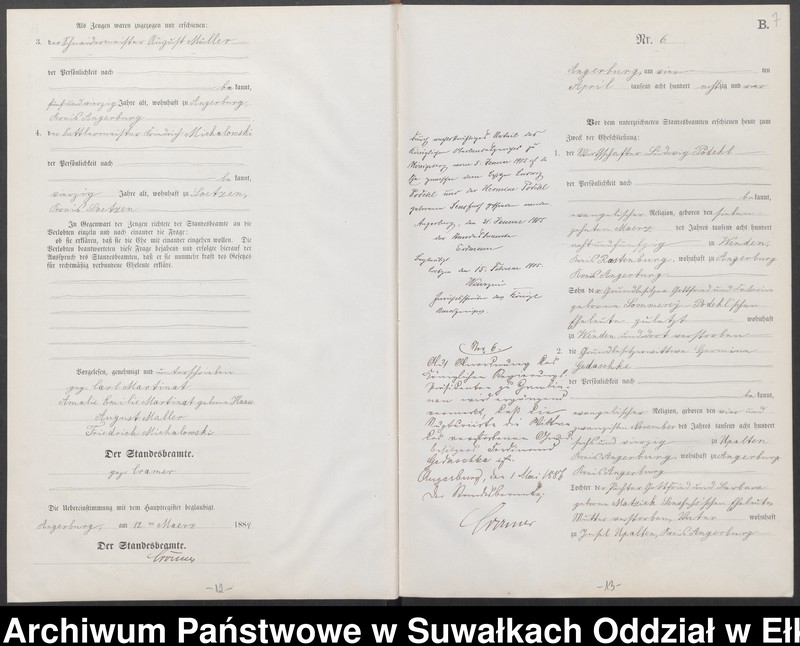 Als Zeugen waren zugezogen und erschienen:
3. der Schneidermeister August Müller
der Persönlichkeit nach
be kannt,
fünfundvierzig Jahre alt, wohnhaft zu Angerburg,
Kreis Angerburg
4. der Sattlermeister Friedrich Michalowski
der Persönlichkeit nach
be kannt,
vierzig Jahre alt, wohnhaft zu Loetzen,
Kreis Loetzen
In Gegenwart der Zeugen richtete der Standesbeamte an die
Verlobten einzeln und nach einander die Frage:
ob sie erklären, daß sie die Ehe mit einander eingehen wollen. Die
Verlobten beantworteten diese Frage bejahend und erfolgte hierauf der
Ausspruch des Standesbeamten, daß er sie nunmehr kraft des Gesetzes
für rechtmäßig verbundene Eheleute erkläre.
Vorgelesen, genehmigt und unterschrieben
gez. Carl Martinat
Amalie Emilie Martinat geborne
August Müller
Friedrich Michalowski
Der Standesbeamte.
gez. Cramer
Die Uebereinstimmung mit dem Hauptregister beglaubigt
Angerburg, am 12 ten Maerz 1884
Der Standesbeamte.
Cramer
-12-
B. 7
Nr. 6
Angerburg, am vier ten
April tausend acht hundert achtzig und vier
Vor dem unterzeichneten Standesbeamten erschienen heute zum
Zweck der Eheschließung:
1. der Wirthschafter Ludwig
der Persönlichkeit nach
be kannt,
evangelischer Religion, geboren den sieben
zehnten Maerz des Jahres tausend acht hundert
zu Wenden,
Kreis Rastenburg, wohnhaft zu Angerburg
Kreis Angerburg
Sohn der Grundbesitzer Gottfried und
geborne
Eheleute zuletzt wohnhaft
zu Wenden und dort verstorben
2. die Grundbesitzerwittwe Hermine
Gedaschke
der Persönlichkeit nach
be kannt,
evangelischer Religion, geboren den vier und
zwanzigsten November des Jahres tausend acht hundert
fünf und vierzig zu Upalten
Kreis Angerburg, wohnhaft zu Angerburg
Kreis Angerburg
Tochter der Pächter Gottfried und Barbara
geborne Eheleute
Mutter verstorben, Vater wohnhaft
zu Insel Upalten, Kreis Angerburg
Durch rechtskräftiges Urteil des
Königlichen zu
vom 5. Januar 1905 ist die
Ehe zwischen dem Ludwig
und der Hermine
geborenen geschieden worden
Angerburg, den 21. Januar 1905
Der Standesbeamte
Beglaubigt
Loetzen den 15. Februar 1905.
Gerichtsschreiber des Königl
Amtsgerichts.
Nro 6.
Auf Anordnung des
Königlichen Regierungs-
Präsidenten zu Gumbin-
nen wird ergänzend
vermerkt, daß die
die Wittwe
des verstorbenen Grund-
besitzers Ferdinand
Gedaschke ist.
Angerburg, den 1 Mai 1886
Der Standesbeamte,
Cramer
-13-
Archiwum Państwowe w Suwałkach Oddział w Ełk